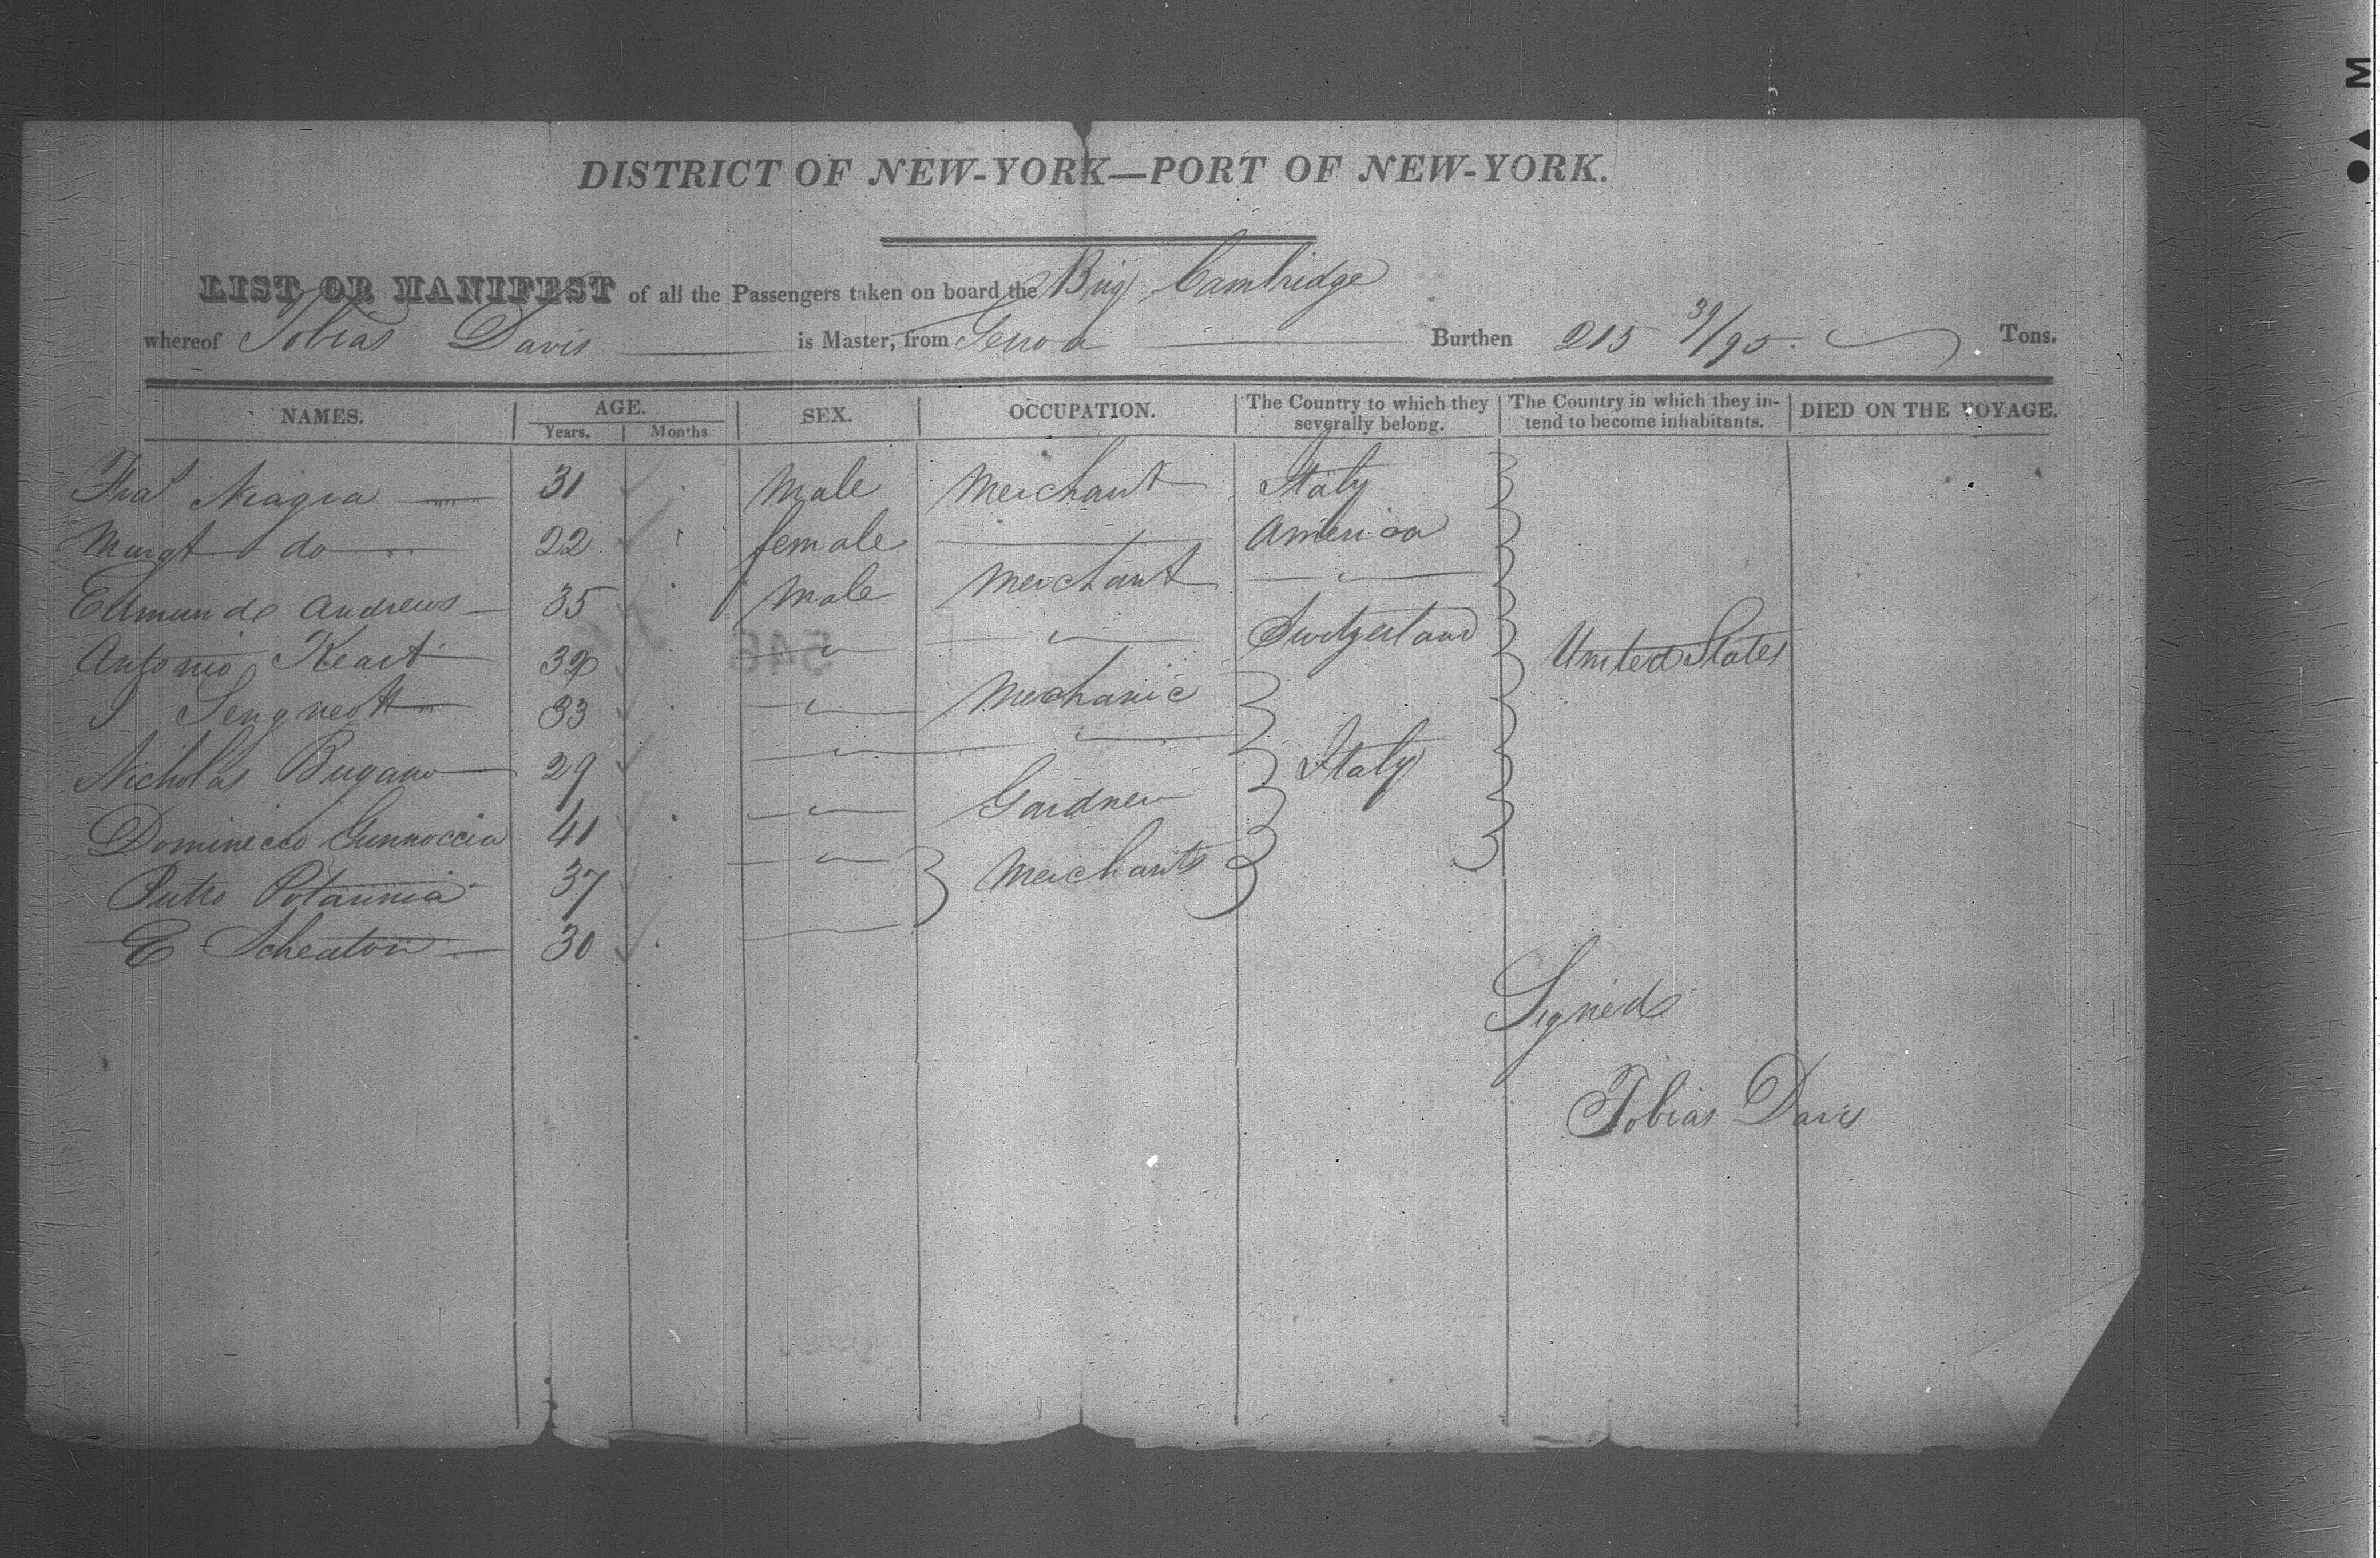 DISTRICT OF NEW-YORK—PORT OF NEW-YORK.
LIST OR MANIFEST of all the Passengers taken on board the Brig Cambridge
whereof Tobias Davis is Master, from Genoa Burthen 215 39/95 Tons.
NAMES. AGE. SEX. OCCUPATION. The Country to which they severally belong. The Country in which they intend to become inhabitants. DIED ON THE VOYAGE.
Years. Months
Fras Niagra 31 Male Merchant Italy
Margt do 22 female America
Edmund Andrews 35 Male Merchant "
Antonio Keart 32 " " Switzerland United States
33 " Mechanic
Nicholas Bugano 29 " " Italy
Dominecco 41 " Gardner
37 " Merchants
E Scheaton 30
Signed
Tobias Davis
546